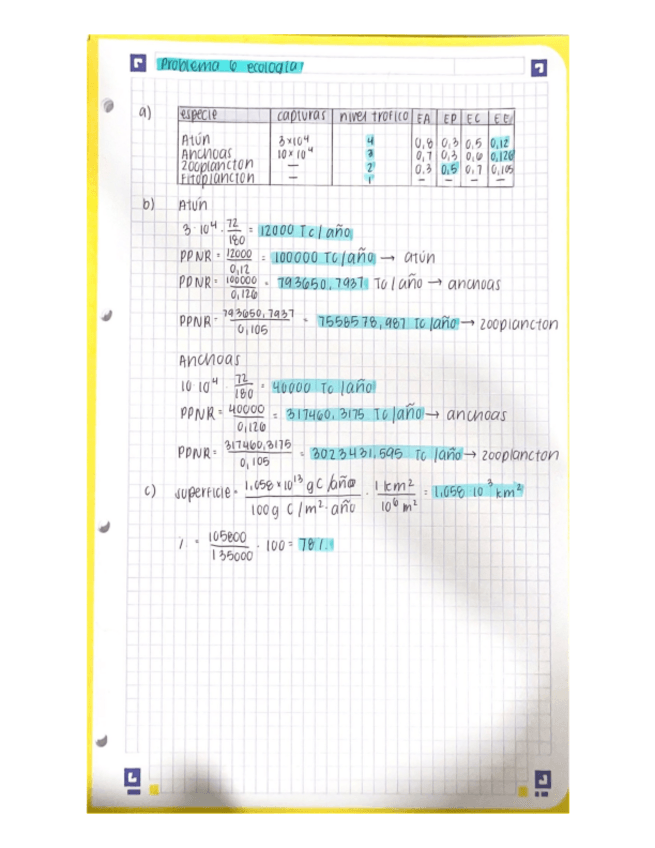 Problema 6 ecología
a)
especie capturas nivel trofico EA EP EC EE
Atún 3×10⁴ 4 0,8 0,3 0,5 0,12
Anchoas 10×10⁴ 3 0,7 0,3 0,6 0,126
Zooplancton — 2 0.3 0,5 0,7 0,105
Fitoplancton — 1 – – – –
b) Atún
3·10⁴ · 72/180 = 12000 Tc/año
PPNR = 12000/0,12 = 100000 TC/año → atún
PPNR = 100000/0,126 = 793650,7937 Tc/año → anchoas
PPNR = 793650,7937/0,105 = 7558578,987 Tc/año → zooplancton
Anchoas
10·10⁴ · 72/180 = 40000 Tc/año
PPNR = 40000/0,126 = 317460,3175 Tc/año → anchoas
PPNR = 317460,3175/0,105 = 3023431,595 Tc/año → zooplancton
c) superficie = 1,058×10¹³ g C/año / 100g C/m²·año · 1 km²/10⁶ m² = 1,058 10³ km²
% = 105800/135000 · 100 = 78%